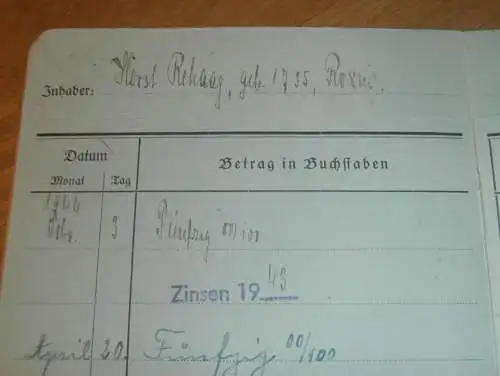 Inhaber: Horst Rehaag, geb. 1735,
Datum
Betrag in Buchstaben
Monat Tag
1944
Febr. 3 Fünfzig 00/100
Zinsen 1943
April 20. Fünfzig 00/100